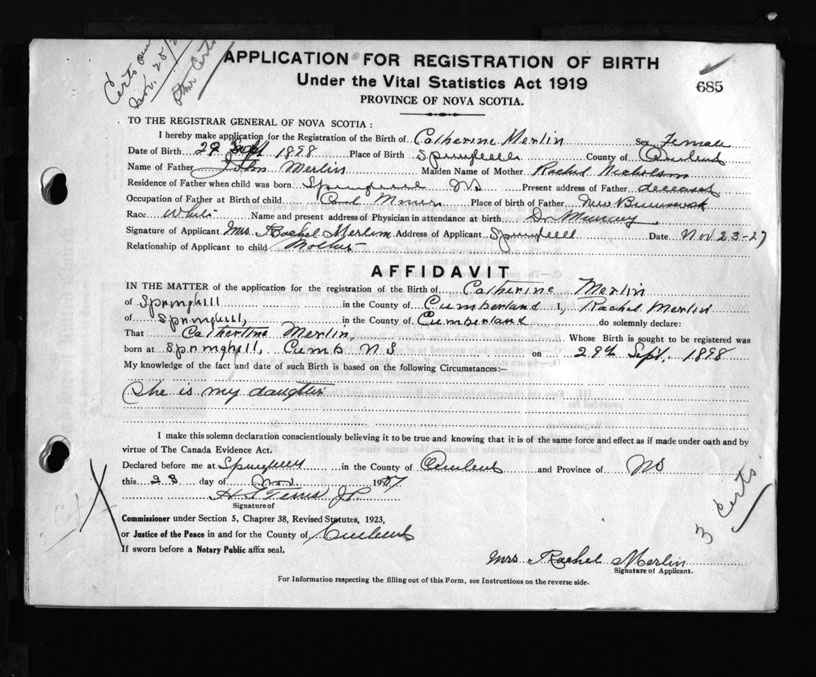 Certs on
Nov. 25/
other Certs
APPLICATION FOR REGISTRATION OF BIRTH
Under the Vital Statistics Act 1919
685
PROVINCE OF NOVA SCOTIA.
TO THE REGISTRAR GENERAL OF NOVA SCOTIA :
I hereby make application for the Registration of the Birth of Catherine Merlin Sex Female
Date of Birth 29 Sept 1898 Place of Birth Springhill County of Cumberland
Name of Father John Merlin Maiden Name of Mother Rachel Nicholson
Residence of Father when child was born Springhill NS Present address of Father deceased
Occupation of Father at Birth of child Coal Miner Place of birth of Father New Brunswick
Race White Name and present address of Physician in attendance at birth Dr
Signature of Applicant Mrs. Rachel Merlin Address of Applicant Springhill Date Nov 23-27
Relationship of Applicant to child Mother
AFFIDAVIT
IN THE MATTER of the application for the registration of the Birth of Catherine Merlin
of Springhill in the County of Cumberland I, Rachel Merlin
of Springhill, in the County of Cumberland do solemnly declare:
That Catherine Merlin, Whose Birth is sought to be registered was
born at Springhill, Cumb NS on 29th Sept. 1898
My knowledge of the fact and date of such Birth is based on the following Circumstances:–
She is my daughter
I make this solemn declaration conscientiously believing it to be true and knowing that it is of the same force and effect as if made under oath and by
virtue of The Canada Evidence Act.
Declared before me at Springhill in the County of Cumberland and Province of NS
this 23 day of Nov. 1927
Signature of
Commissioner under Section 5, Chapter 38, Revised Statutes, 1923,
or Justice of the Peace in and for the County of Cumberland
If sworn before a Notary Public affix seal.
3 Certs.
Mrs Rachel Merlin
Signature of Applicant.
For Information respecting the filling out of this Form, see Instructions on the reverse side.